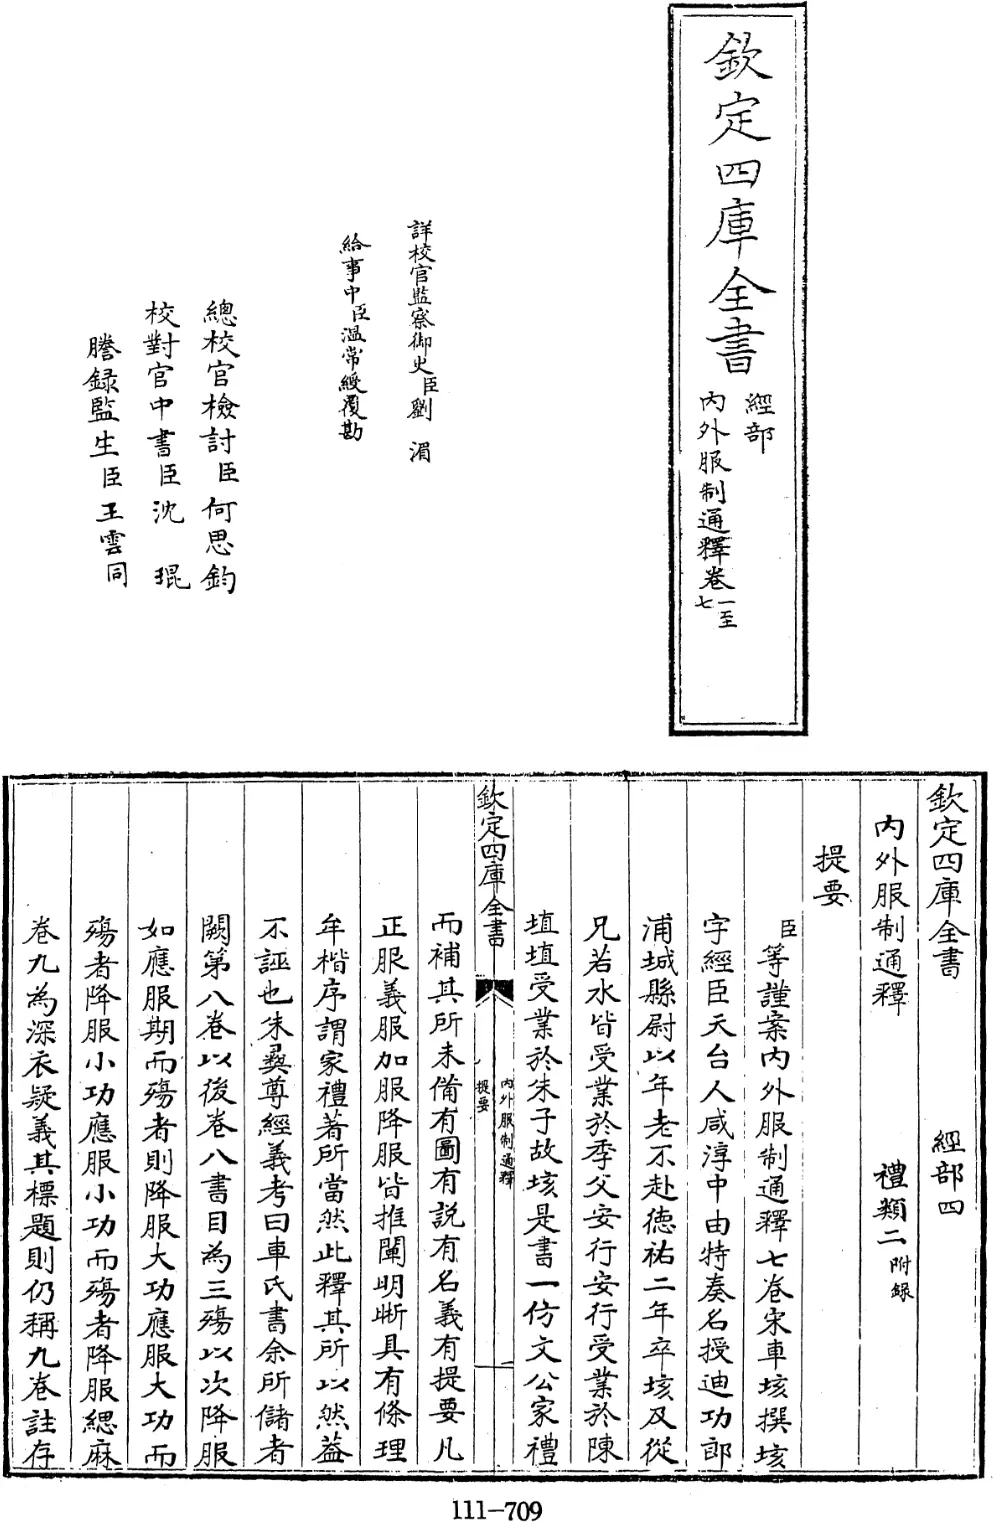 欽定四庫全書
經部
內外服制通釋卷一至七
詳校官監察御史臣劉湄
給事中臣溫常綬覆勘
總校官檢討臣何思鈞
校對官中書臣沈琨
謄錄監生臣王雲同
欽定四庫全書 經部四
內外服制通釋 禮類二附錄
提要
臣等謹案內外服制通釋七卷宋車垓撰垓
字經臣天台人咸淳中由特奏名授迪功郎
浦城縣尉以年老不赴德祐二年卒垓及從
兄若水皆受業於季父安行安行受業於陳
埴埴受業於朱子故垓是書一仿文公家禮
欽定四庫全書
內外服制通釋
提要
一
而補其所未備有圖有說有名義有提要凡
正服義服加服降服皆推闡明晰具有條理
牟楷序謂家禮著所當然此釋其所以然蓋
不誣也朱彝尊經義考曰車氏書余所儲者
闕第八卷以後卷八書目為三殤以次降服
如應服期而殤者則降服大功應服大功而
殤者降服小功應服小功而殤者降服緦麻
卷九為深衣疑義其標題則仍稱九卷註存
111-709